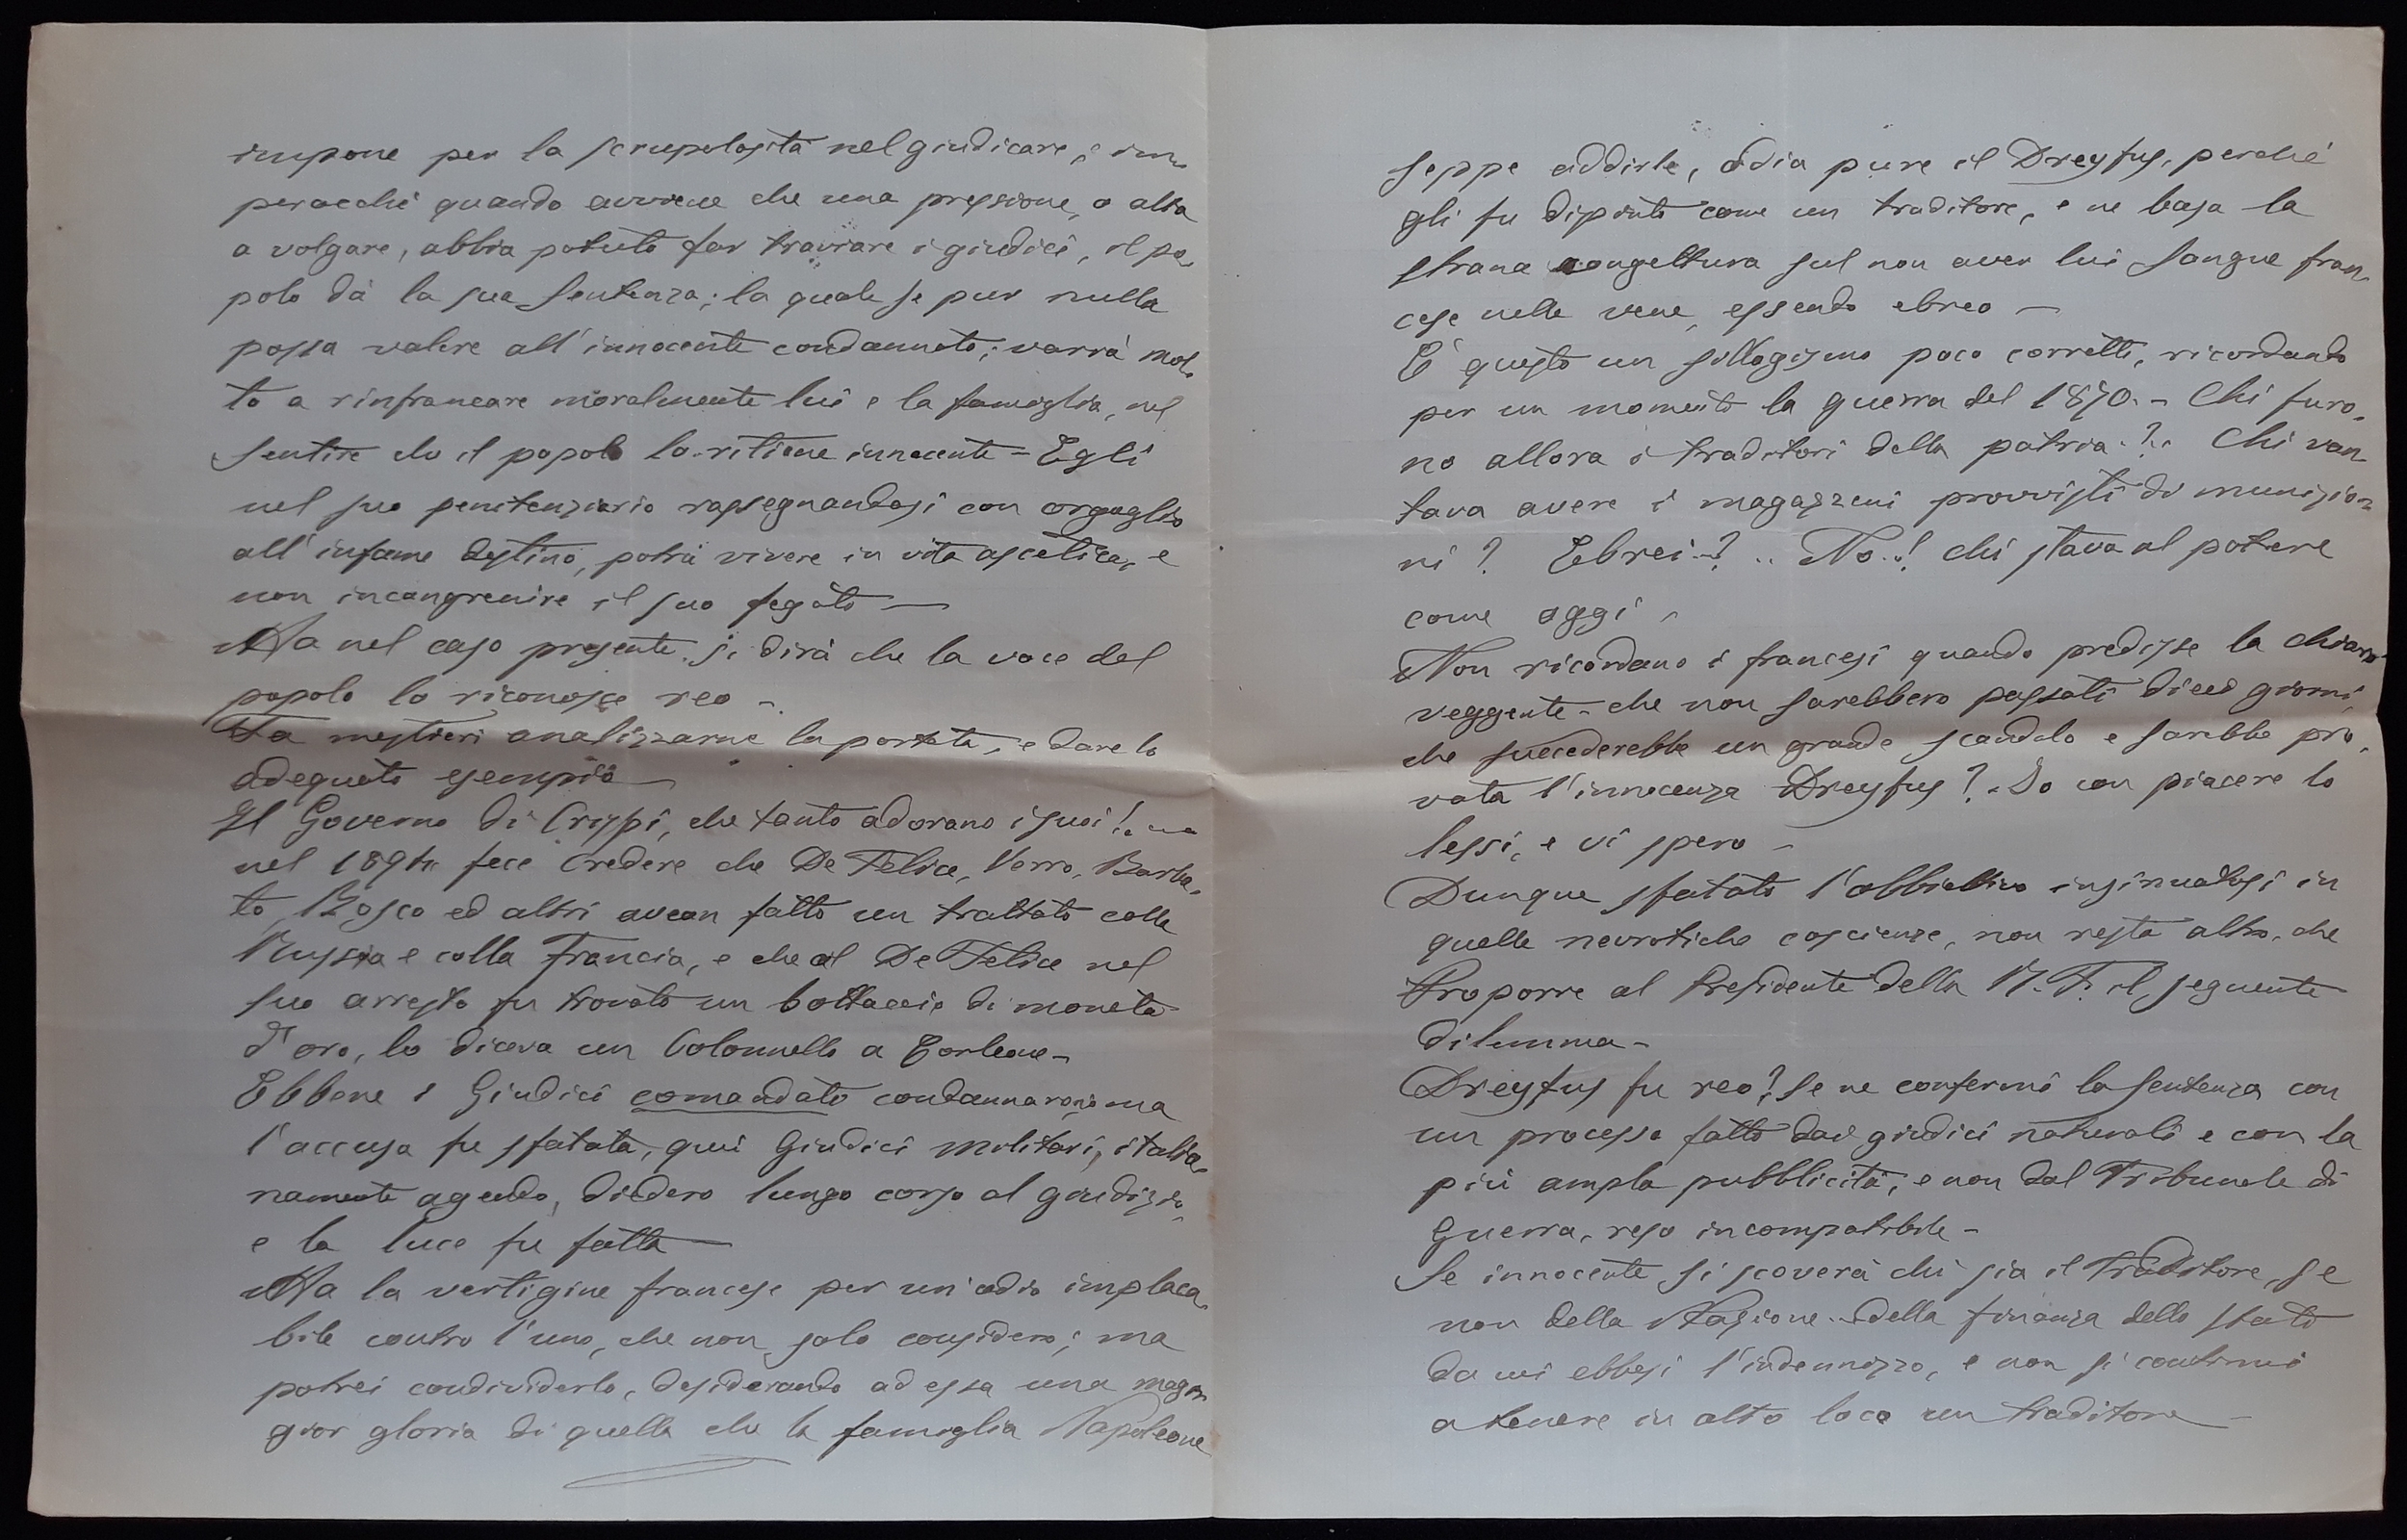 impone per la scrupolosità nel giudicare, e im-
perocchè quando avviene che una pressione, o alta
o volgare, abbia potuto far traviare i giudici, il po-
polo dà la sua sentenza; la quale se pur nulla
possa valere all'innocente condannato; varrà mol-
to a rinfrancare moralmente lui e la famiglia, nel
sentire che il popolo lo ritiene innocente = Egli
nel suo penitenziario rassegnandosi con orgoglio
all'infame destino, potrà vivere in vita ascetica, e
non incangrenire il suo fegato —
Ma nel caso presente, si dirà che la voce del
popolo lo riconosce reo -
Fa mestieri analizzarne la portata, e dare lo
adequato esempio —
Il Governo di Crispi, che tanto adorano i suoi!
nel 1894 fece credere che De Felice, Verro, Barba-
to, Bosco ed altri avean fatto un trattato colla
Russia e colla Francia, e che al De Felice nel
suo arresto fu trovato un bottaccio di moneta
d'oro, lo diceva un Colonnello a Corleone -
Ebbene i Giudici comandato condannarono ma
l'accusa fu sfatata, qui Giudici militari, italia-
namente agendo, diedero lungo corso al giudizio,
e la luce fu fatta —
Ma la vertigine francese per un'odio implaca-
bile contro l'uno, che non solo considero; ma
potrei condividerlo, desiderando ad essa una mag-
gior gloria di quella che la famiglia Napoleone
seppe addirle, odia pure il Dreyfus, perchè
gli fu dipinto come un traditore, e ne basa la
strana congettura sul non aver lui sangue fran-
cese nelle vene, essendo ebreo —
È questo un sillogismo poco corretto, ricordando
per un momento la guerra del 1870. - Chi furo-
no allora i traditori della patria..?.. Chi van-
tava avere i magazzeni provvisti di munizio-
ni? Ebrei..? .. No..! chi stava al potere
come oggi -
Non ricordano i francesi quando predisse la chiaro
veggente - che non sarebbero passati dieci giorni,
che succederebbe un grande scandalo e sarebbe pro-
vata l'innocenza Dreyfus? Io con piacere lo
lessi, e vi spero -
Dunque sfatato l'obbiettivo insinuatosi in
quelle nevrotiche coscienze, non resta altro, che
Proporre al Presidente della R. F. il seguente
dilemma -
Dreyfus fu reo? Se ne confermi la sentenza con
un processo fatto dai giudici naturali e con la
più ampla pubblicità, e non dal Tribunale di
Guerra, reso incompatibile -
Se innocente, si scoverà chi sia il traditore, se
non della Nazione .. della finanza dello stato
da cui ebbesi l'indennizzo, e non si continui
a tenere in alto loco un traditore —